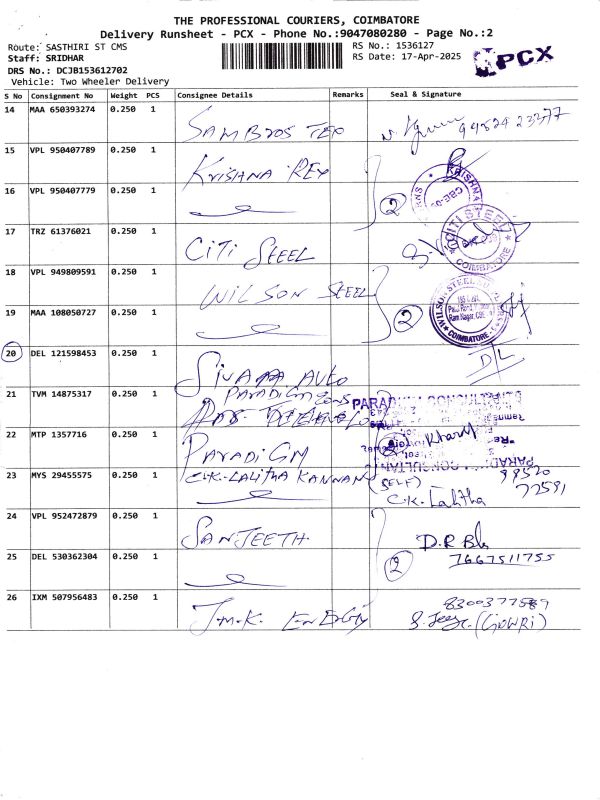 THE PROFESSIONAL COURIERS, COIMBATORE
Delivery Runsheet - PCX - Phone No.:9047080280 - Page No.:2
Route: SASTHIRI ST CMS
RS No.: 1536127
Staff: SRIDHAR
RS Date: 17-Apr-2025
PCX
DRS No.: DCJB153612702
Vehicle: Two Wheeler Delivery
S No Consignment No Weight PCS Consignee Details Remarks Seal & Signature
14 MAA 650393274 0.250 1 SAMBROS TEX
15 VPL 950407789 0.250 1 KRISHNA REY
16 VPL 950407779 0.250 1 2
17 TRZ 61376021 0.250 1 CITI STEEL CITI STEEL COIMBATORE
18 VPL 949809591 0.250 1 WILSON STEEL
19 MAA 108050727 0.250 1 2 WILSON STEEL COIMBATORE
20 DEL 121598453 0.250 1 SIVARA AUTO D/L
21 TVM 14875317 0.250 1 PARADIGM
22 MTP 1357716 0.250 1 PARADIGM
23 MYS 29455575 0.250 1 C.K. LALITHA KANNAN (SELF) C.K. Lalitha 99520 72591
24 VPL 952472879 0.250 1 SANJEETH D.R
25 DEL 530362304 0.250 1 2 7667511755
26 IXM 507956483 0.250 1 J.M.K. ENERGY (GOWRI)